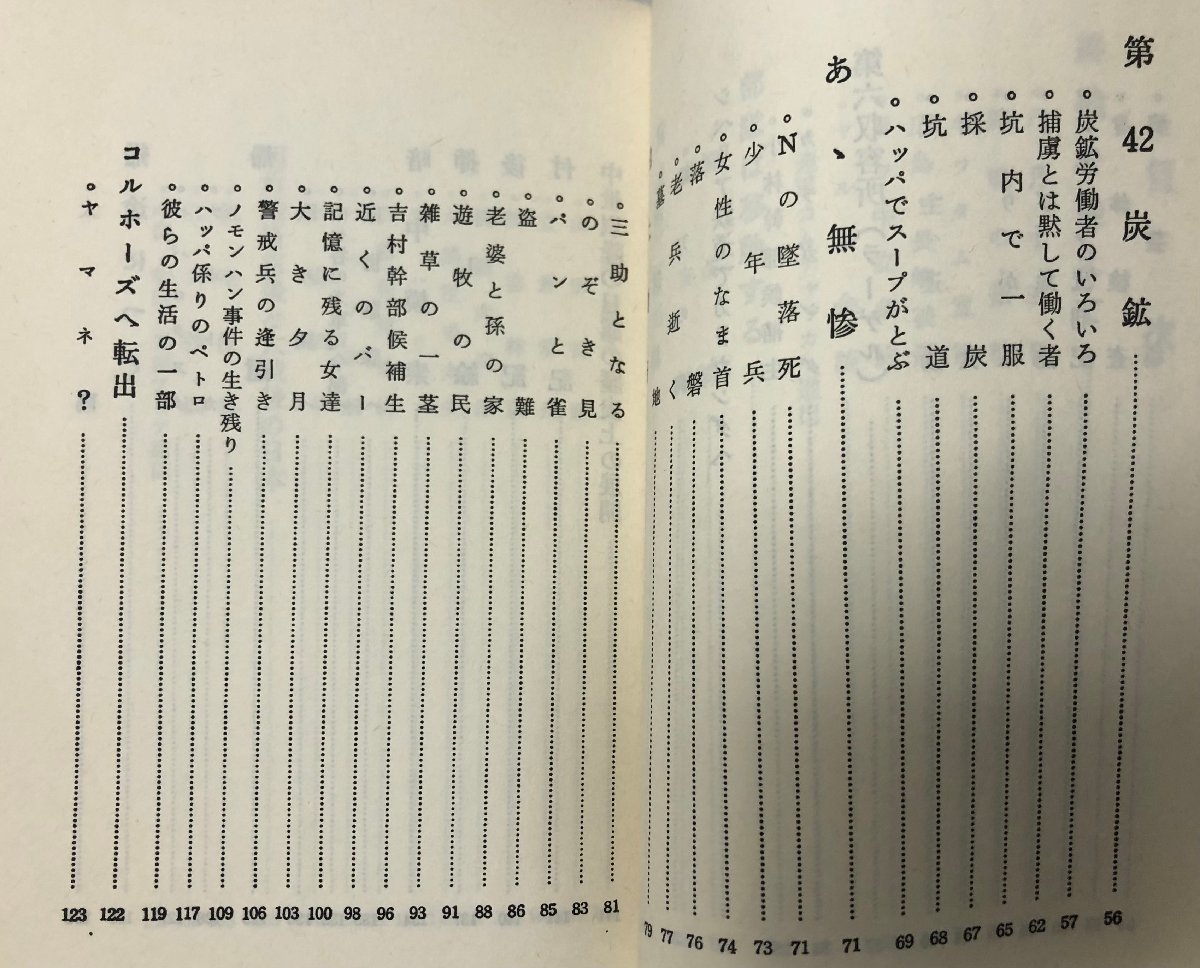 第42炭鉱 56
。炭鉱労働者のいろいろ 57
。捕虜とは黙して働く者 62
。坑内で一服 65
。採炭 67
。坑道 68
。ハッパでスープがとぶ 69
あゝ無惨 71
。Nの墜落死 71
。少年兵 73
。女性のなま首 74
。落磐 76
。老兵逝く 77
。墓地 79
。三助となる 81
。のぞき見 83
。パンと雀 85
。盗難 86
。老婆と孫の家 88
。遊牧の民 91
。雑草の一茎 93
。吉村幹部候補生 96
。近くのバー 98
。記憶に残る女達 100
。大き夕月 103
。警戒兵の逢引き 106
。ノモンハン事件の生き残り 109
。ハッパ係りのペトロ 117
。彼らの生活の一部 119
コルホーズへ転出 122
。ヤマネ? 123